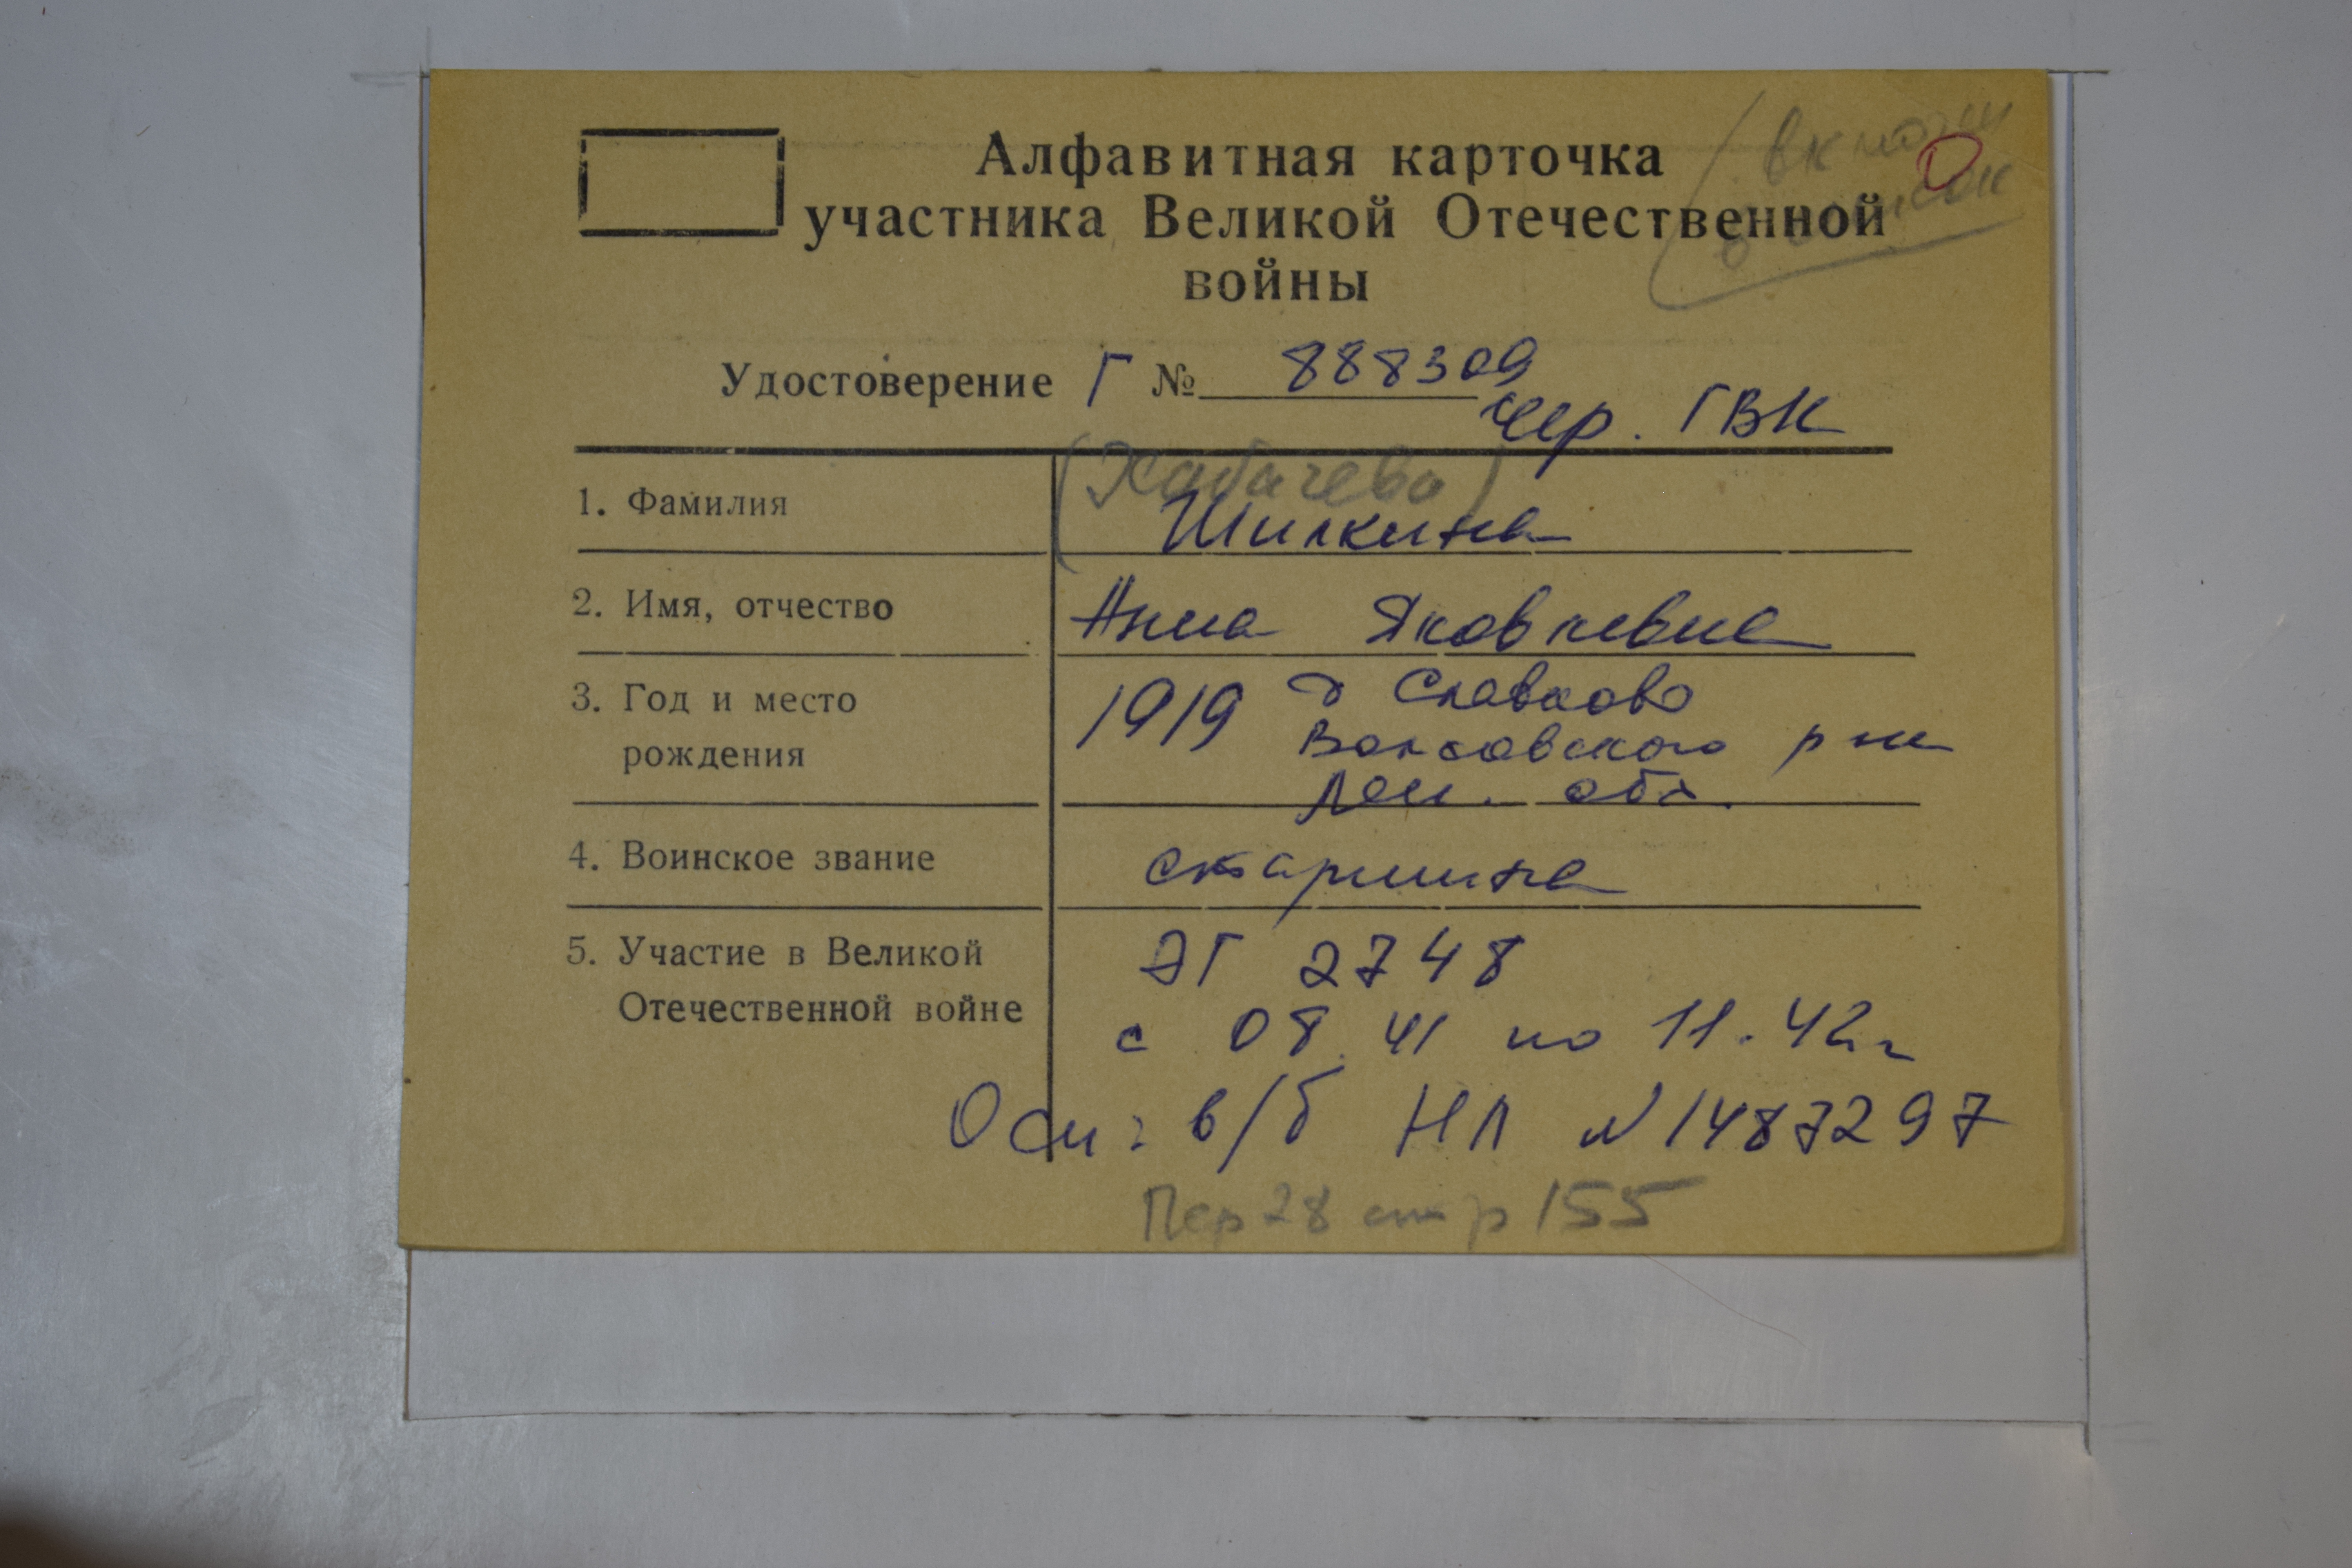 Алфавитная карточка
участника Великой Отечественной
войны
Удостоверение Г № 888309
Чер. ГВК
1. Фамилия
Шилкина
2. Имя, отчество Анна Яковлевна
3. Год и место
рождения
1919 д Славково
Волховского р на
Лен. обл.
4. Воинское звание старшина
5. Участие в Великой
Отечественной войне
ЭГ 2748
с 08.41 по 11.42г
Осн: в/б НЛ №1487297
Пер 28 стр 155